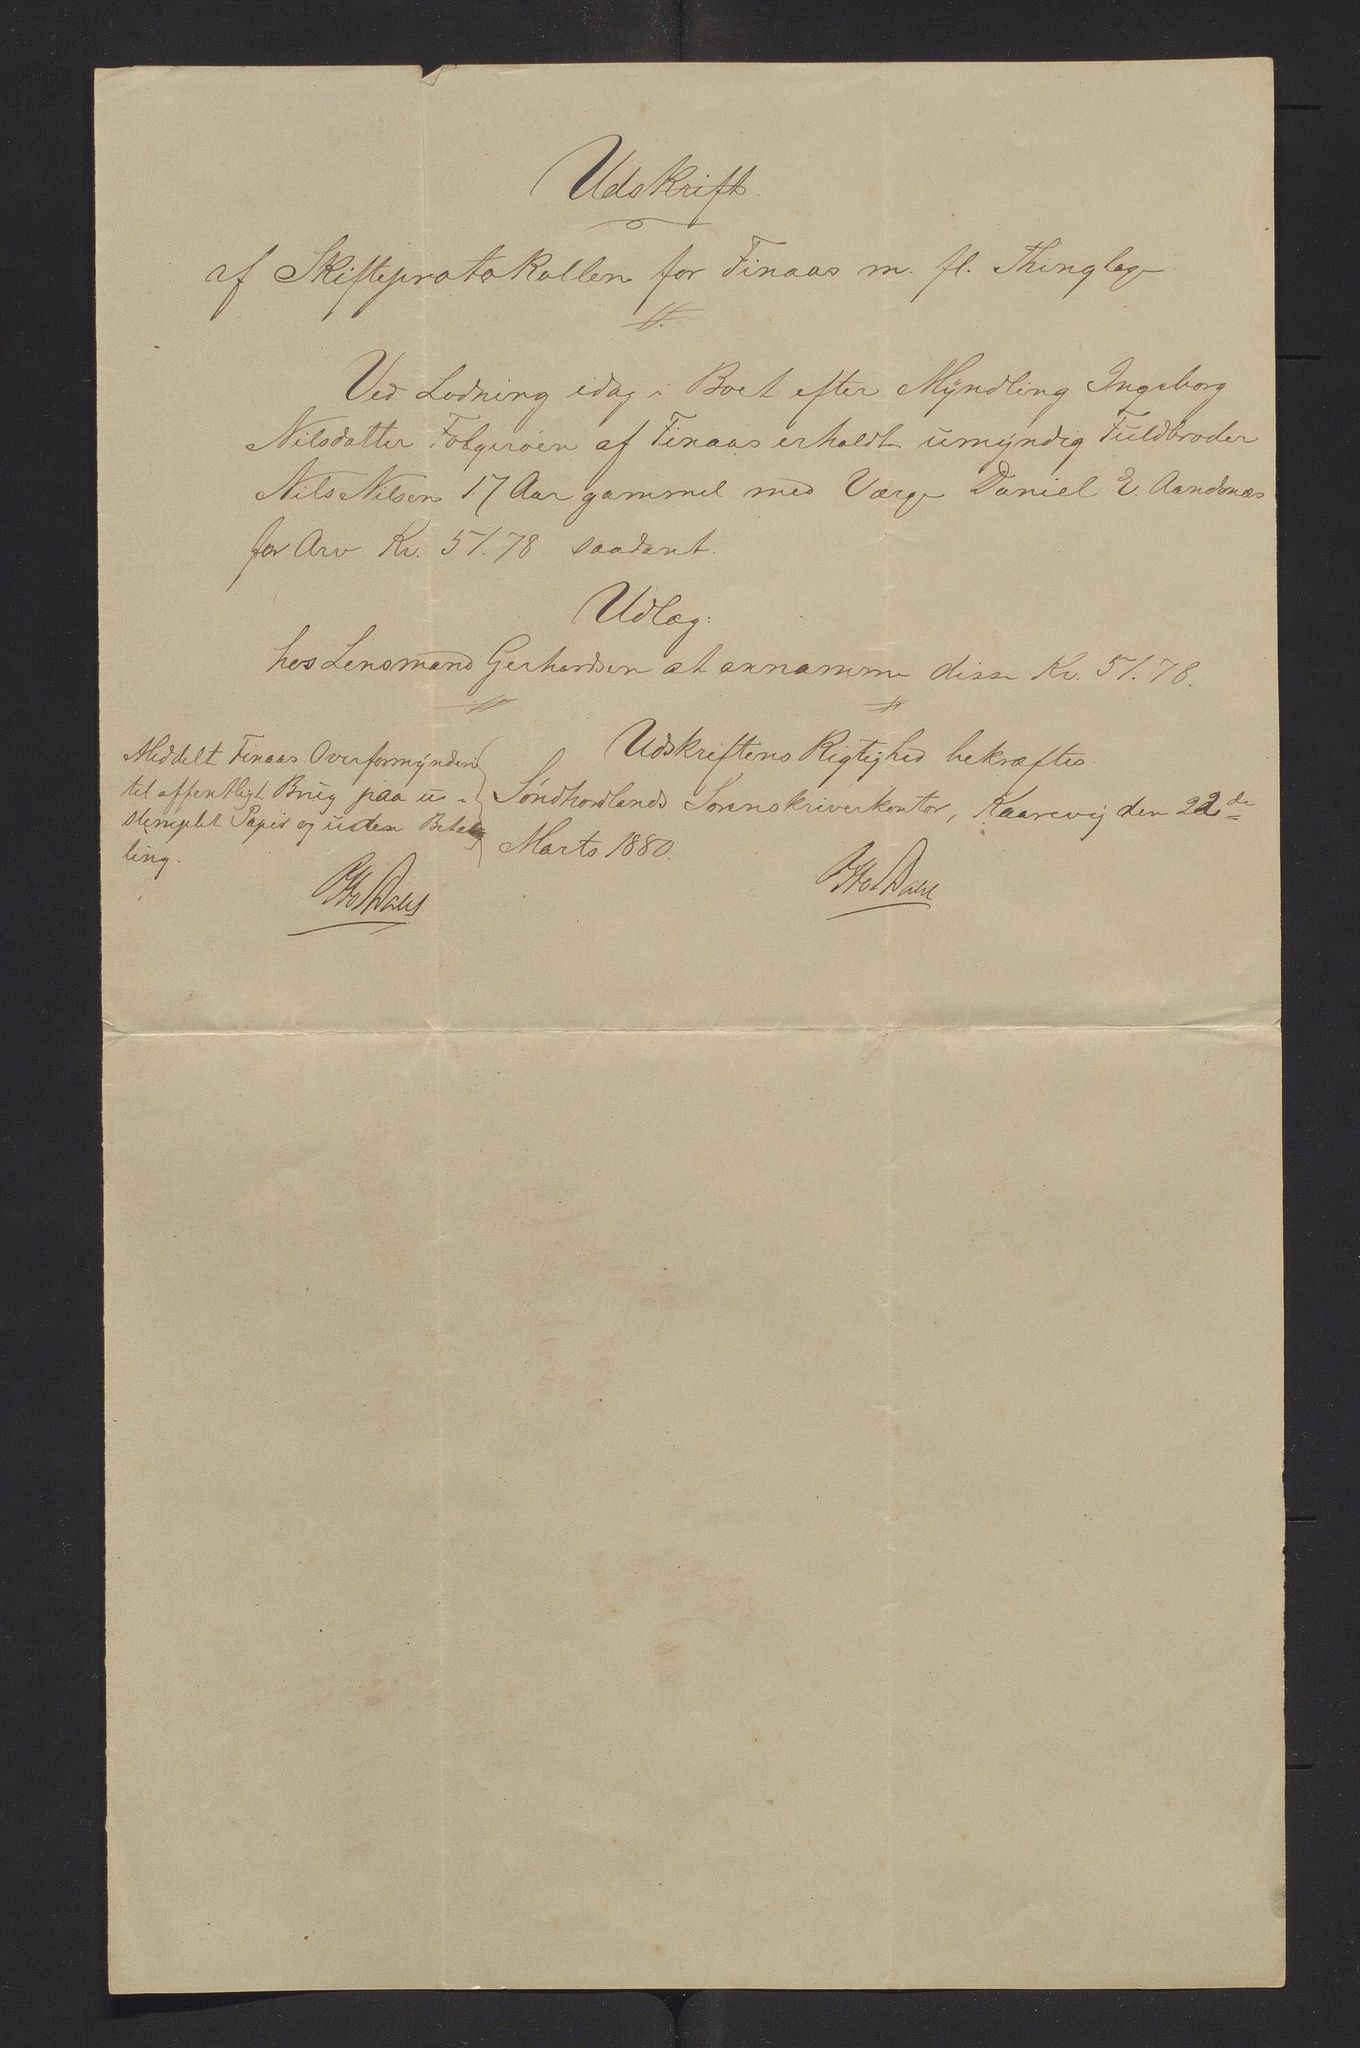 Udskrift
af Skifteprotokollen for Finaas m. fl. Thinglag
Ved Lodning idag i Boet efter Myndling Ingeborg
Nilsdatter Folgerøen af Finaas erholdt umyndig Fuldbroder
Nils Nilsen 17 Aar gammel med Værge Daniel E. Aandsnæs
for Arv Kr. 51.78 saadant.
Udlæg:
hos Lensmand Gerhardsen at annamme disse Kr. 51.78.
Udskriftens Rigtighed bekræftes.
Søndhordlands Sorenskriverkontor, Kaarevig den 22de
Marts 1880.
Otto Dahl
Meddelt Finaas Overformynderi
til offentligt Brug paa u-
stemplet Papir og uden Beta-
ling.
Otto Dahl